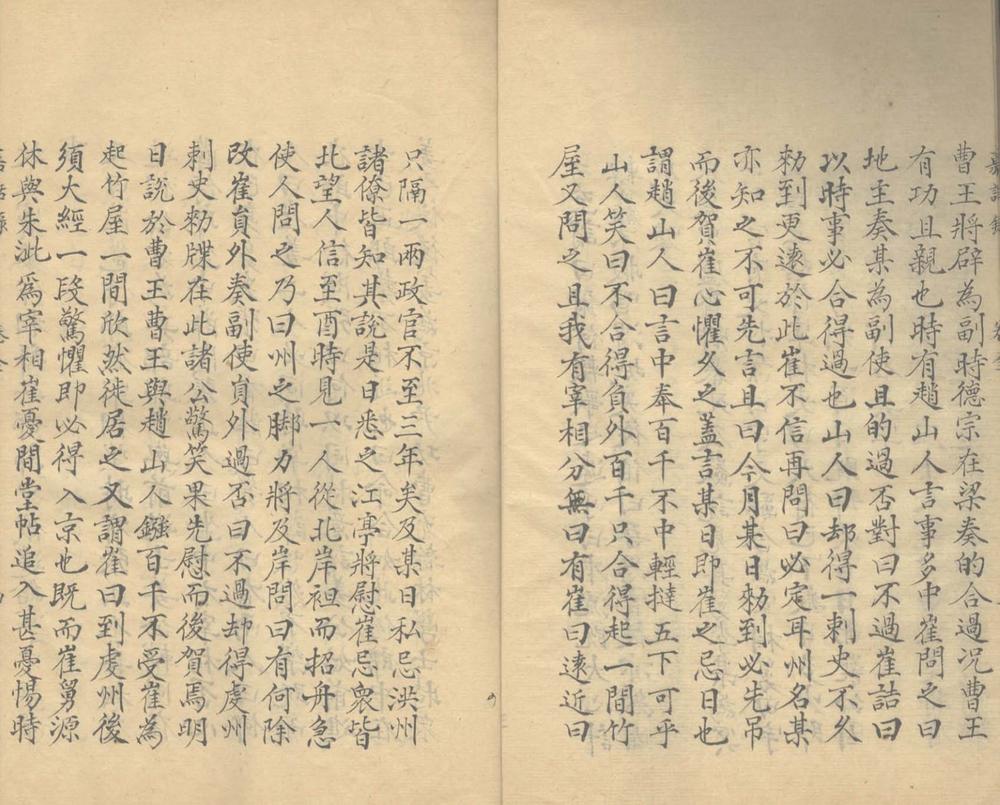 曹王將辟為副時德宗在梁奏的合過況曹王
有功且親也時有趙山人言事多中崔問之曰
地主奏某為副使且的過否對曰不過崔詰曰
以時事必合得過也山人曰却得一刺史不久
勑到更遠於此崔不信再問曰必定耳州名某
亦知之不可先言且曰今月某日勑到必先吊
而後賀崔心懼久之蓋言某日即崔之忌日也
謂趙山人曰言中奉百千不中輕撻五下可乎
山人笑曰不合得負外百千只合得起一間竹
屋又問之且我有宰相分無曰有崔曰遠近曰
只隔一兩政官不至三年矣及某日私忌洪州
諸僚皆知其說是日悉之江亭將慰崔忌衆皆
北望人信至酉時見一人從北岸袒而招舟急
使人問之乃曰州之脚力將及岸問曰有何除
改崔負外奏副使負外過否曰不過却得虔州
刺史勑牒在此諸公驚笑果先慰而後賀焉明
日說於曹王曹王與趙山人鏹百千不受崔為
起竹屋一間欣然徙居之又謂崔曰到虔州後
須大經一段驚懼即必得入京也既而崔舅源
休與朱泚爲宰相崔憂間堂帖追入甚憂惕時